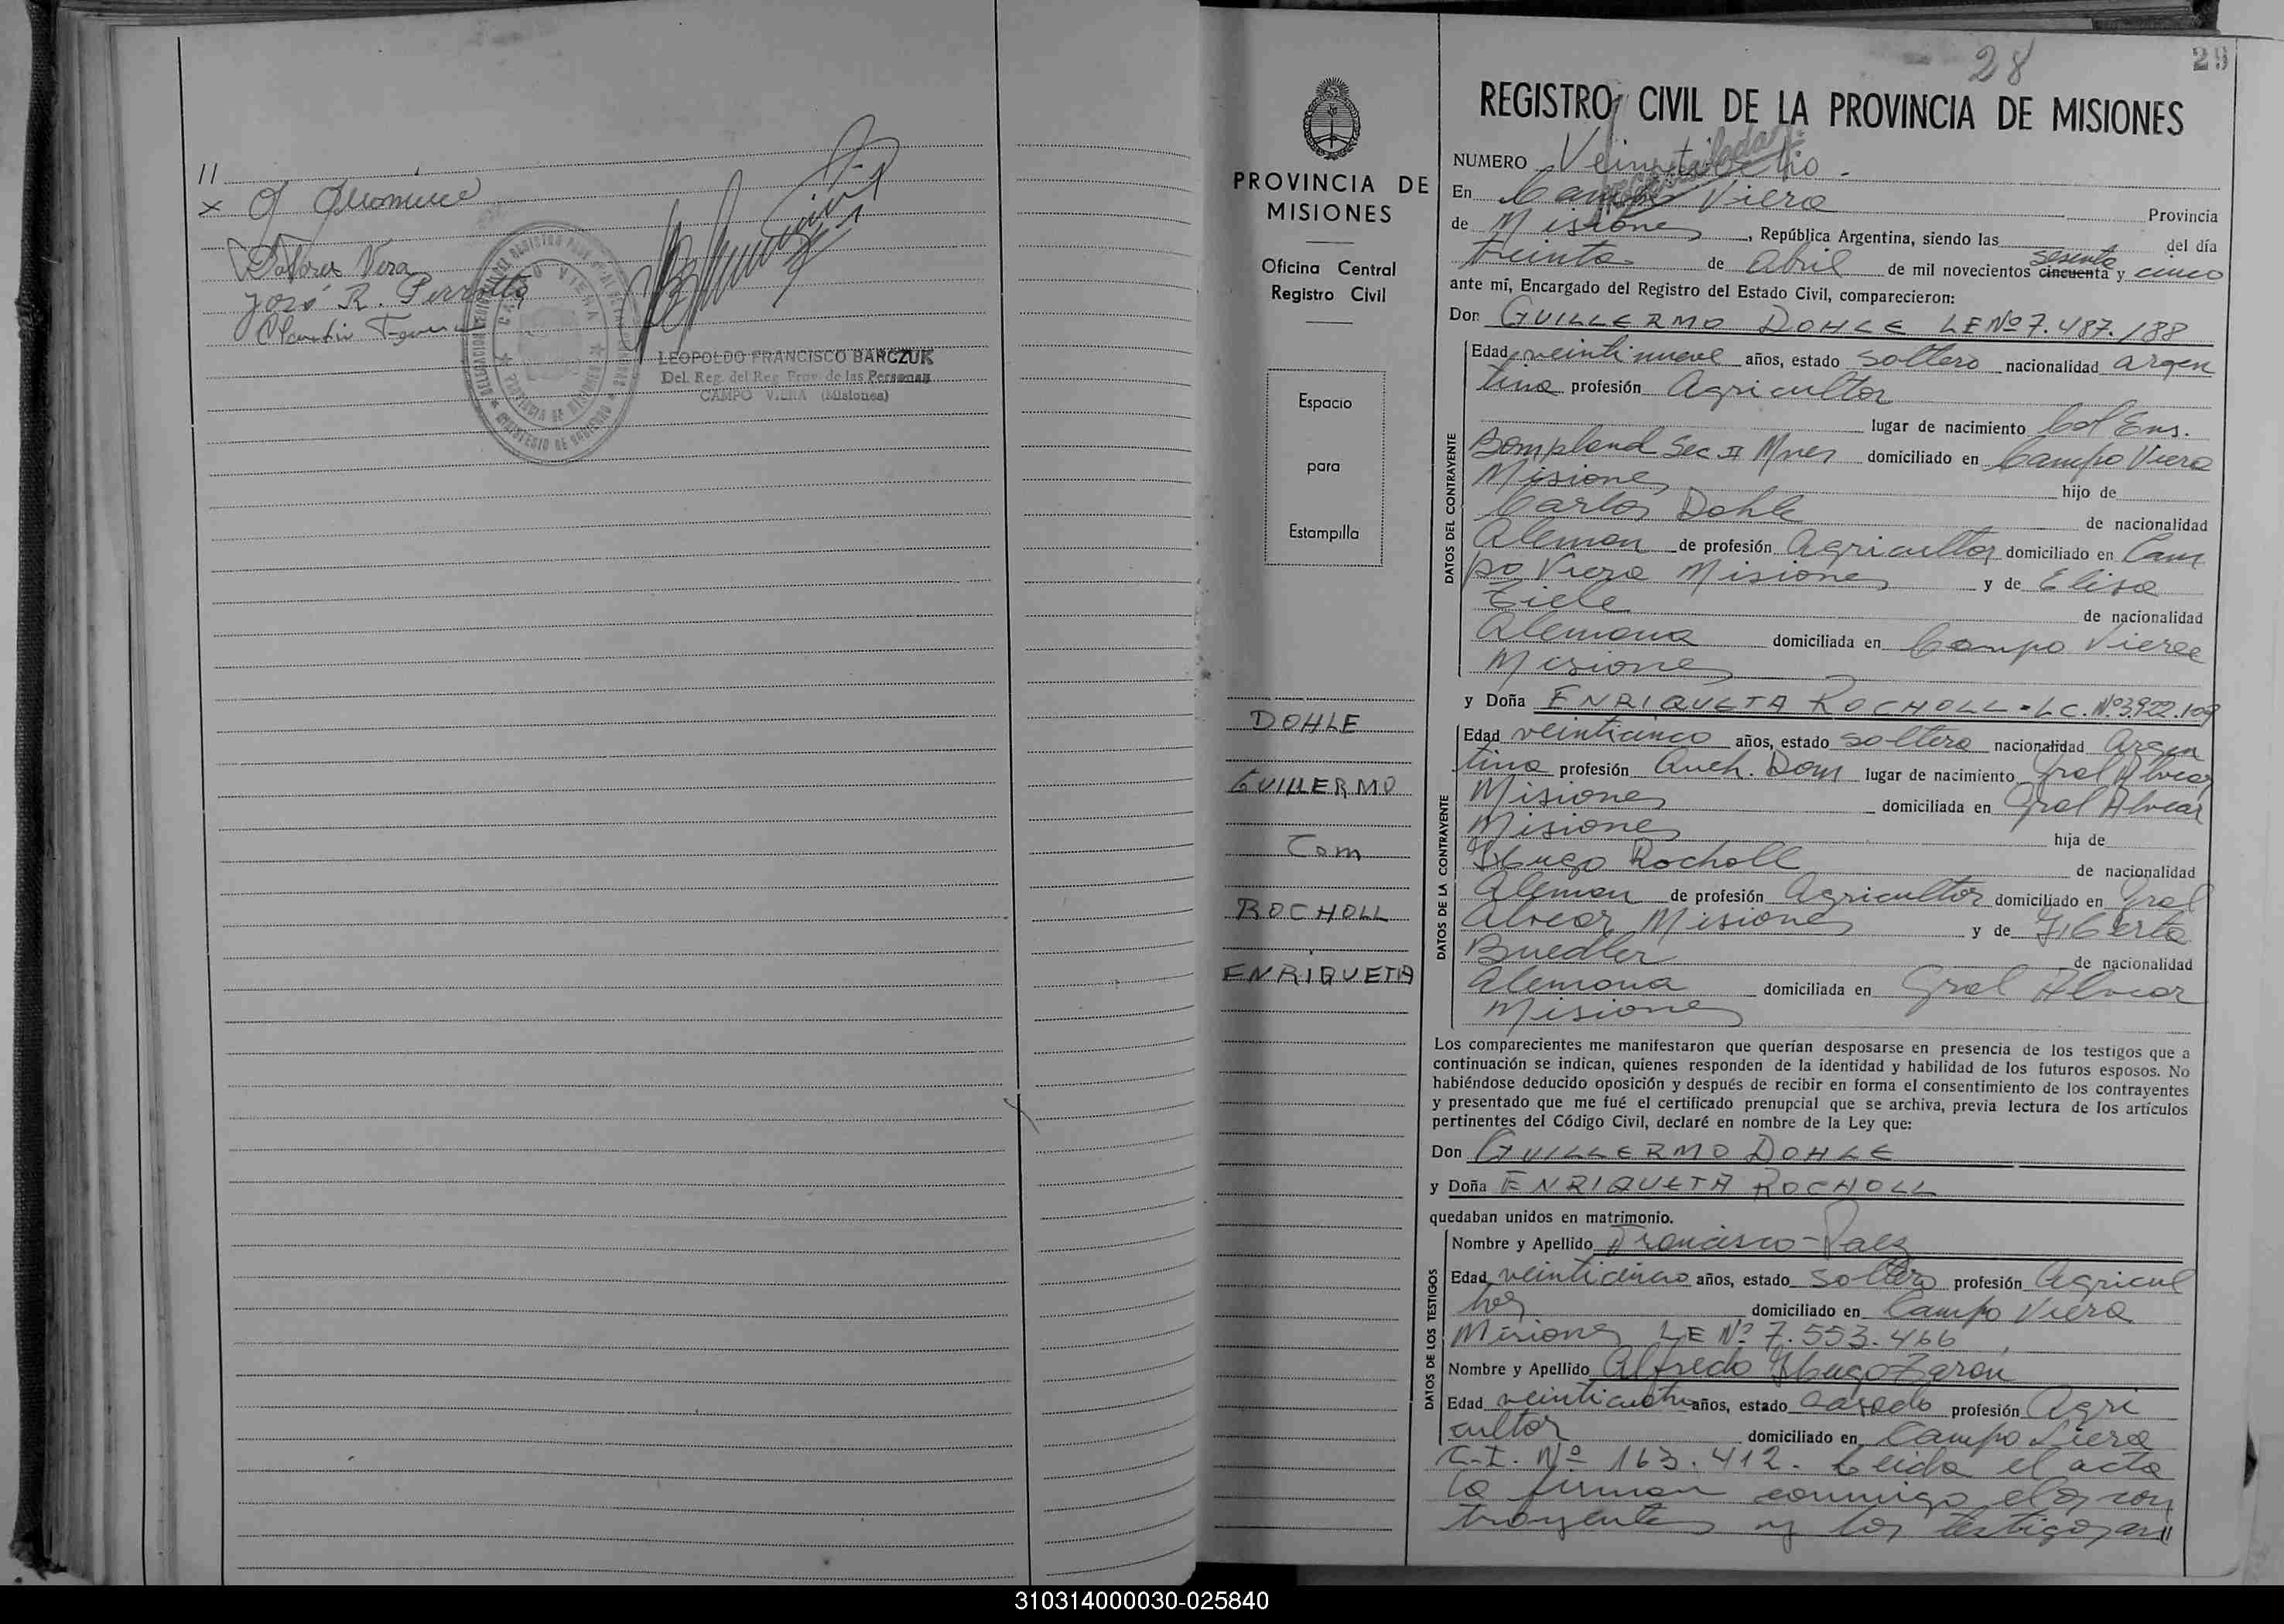 11
Dolores Vera
José R. Perrotta
LEOPOLDO FRANCISCO BARCZUK
Del. Reg. del Reg. Prov. de las Personas
CAMPO VIERA (Misiones)
28
29
REGISTRO CIVIL DE LA PROVINCIA DE MISIONES
PROVINCIA DE
MISIONES
Oficina Central
Registro Civil
Espacio
para
Estampilla
DOHLE
GUILLERMO
Com
ROCHOLL
ENRIQUETA
NUMERO
En Campo Viera Provincia
de Misiones, República Argentina, siendo las del día
treinta de Abril de mil novecientos cincuenta sesenta y cinco
ante mí, Encargado del Registro del Estado Civil, comparecieron:
Don GUILLERMO DOHLE LE Nº 7.487.188
DATOS DEL CONTRAYENTE
Edad veintinueve años, estado soltero nacionalidad argen
tina profesión Agricultor
lugar de nacimiento Col Ens.
Bompland Sec II Mnes domiciliado en Campo Viera
Misiones hijo de
Carlos Dohle de nacionalidad
Aleman de profesión Agricultor domiciliado en Cam
po Viera Misiones y de Elisa
Tiele de nacionalidad
Alemana domiciliada en Campo Viera
Misiones
y Doña ENRIQUETA ROCHOLL - LC. Nº 3.922.109
DATOS DE LA CONTRAYENTE
Edad veinticinco años, estado soltera nacionalidad Argen
tina profesión Queh. Dom lugar de nacimiento Gral Alvear
Misiones domiciliada en Gral Alvear
Misiones hija de
Hugo Rocholl de nacionalidad
Aleman de profesión Agricultor domiciliado en Gral
Alvear Misiones y de
Buedller de nacionalidad
Alemana domiciliada en Gral Alvear
Misiones
Los comparecientes me manifestaron que querían desposarse en presencia de los testigos que a
continuación se indican, quienes responden de la identidad y habilidad de los futuros esposos. No
habiéndose deducido oposición y después de recibir en forma el consentimiento de los contrayentes
y presentado que me fué el certificado prenupcial que se archiva, previa lectura de los artículos
pertinentes del Código Civil, declaré en nombre de la Ley que:
Don GUILLERMO DOHLE
y Doña ENRIQUETA ROCHOLL
quedaban unidos en matrimonio.
DATOS DE LOS TESTIGOS
Nombre y Apellido Francisco Paez
Edad veinticinco años, estado soltero profesión Agricul
tor domiciliado en Campo Viera
Misiones LE Nº 7.553.466
Nombre y Apellido Alfredo Hugo Zaron
Edad veinticuatro años, estado casado profesión Agri
cultor domiciliado en Campo Viera
C.I. Nº 163.412. Leida el acta
la firman conmigo los con
trayentes y los testigos an//
310314000030-025840